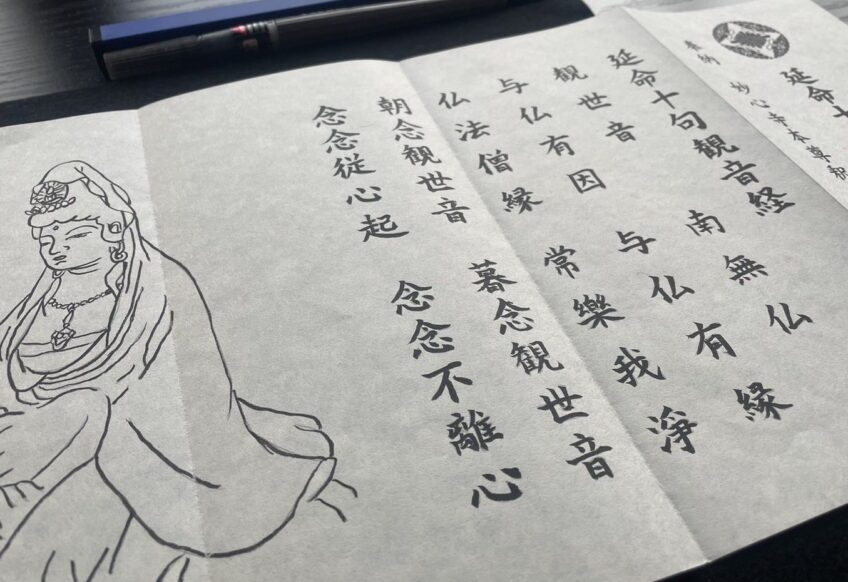 延命十
奉納
延命十句観音経
観世音 南無仏
与仏有因 与仏有縁
仏法僧縁 常樂我淨
朝念観世音 暮念観世音
念念從心起 念念不離心